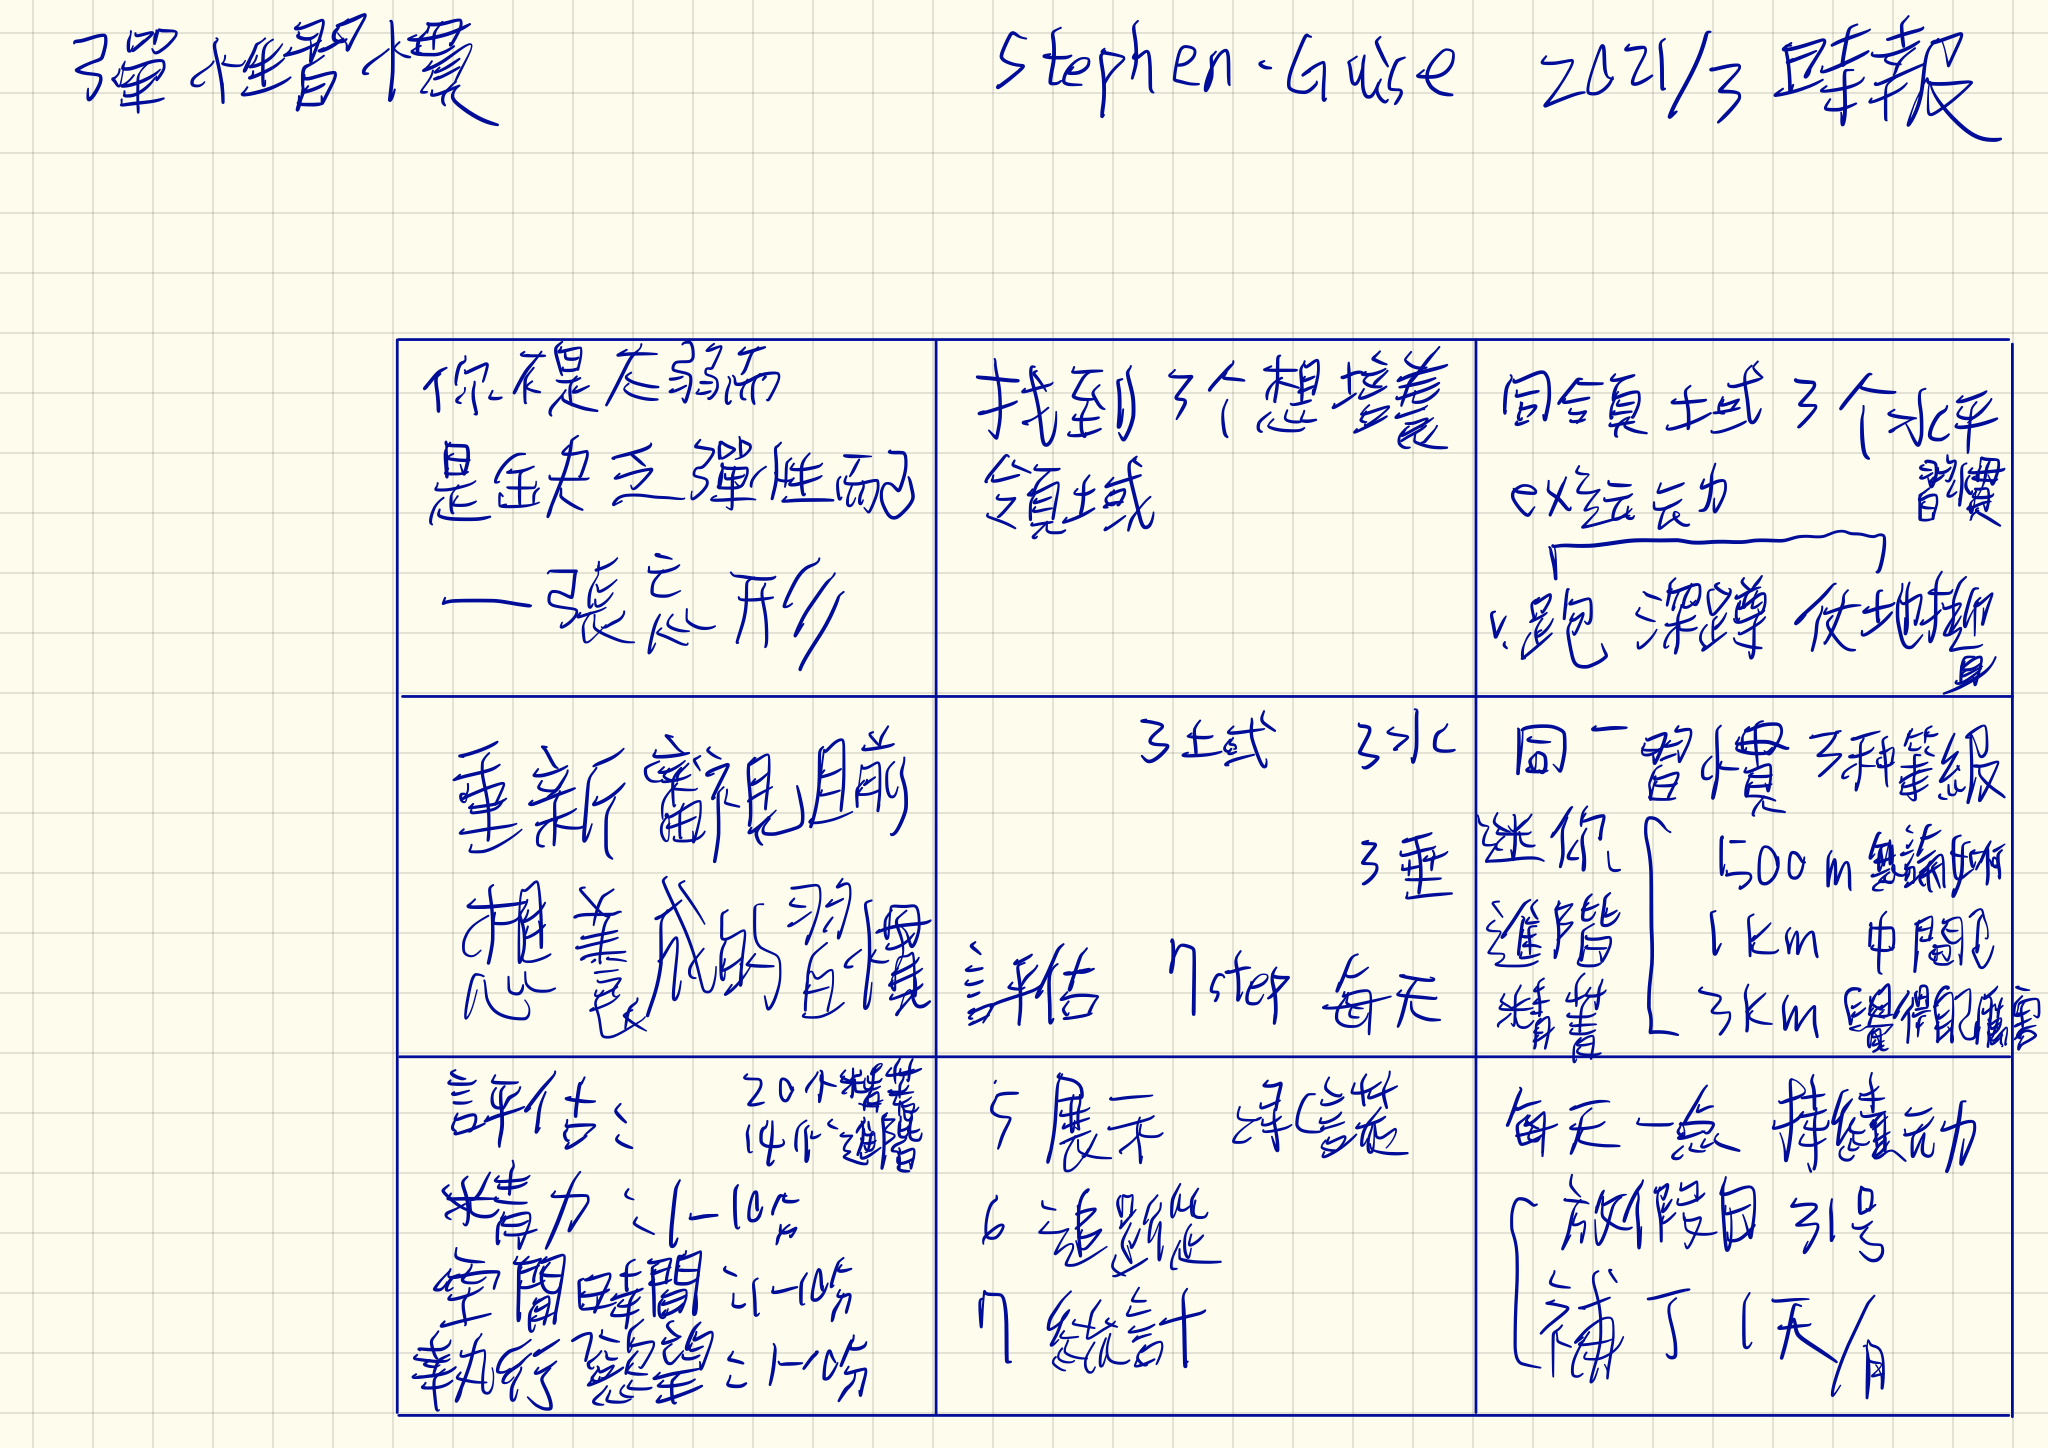 彈性習慣
Stephen·Guise 2021/3 時報
你不是太弱而
是缺乏彈性而已
一張忘形
找到3个想培養
領域
同領域3个水平
習慣
ex運动
v.跑 深蹲 伏地挺
身
重新審視目前
想養成的習慣
3域 3水
3垂
評估 7step 每天
同一習慣3种等級
迷你 500m 無論如何
進階 1km 中間
精菁 3km 覺得配厲害
評估: 20个精菁
14个進階
精力:1-10分
空閒時間:1-10分
執行慾望:1-10分
5 展示 承諾
6 追蹤
7 統計
每天一点 持續元力
放假日 31号
補丁 1天/月